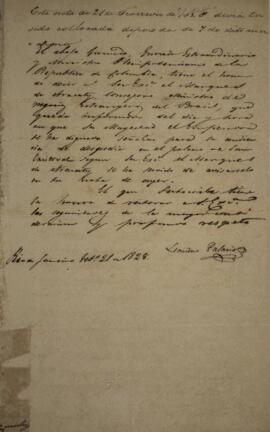 Esta nota de 21 de Fevereiro de 1828 devia ter
sido collocada depois da de 7 do dito mez
El abajo firmado, Enviado Extraordinario
y Ministro Plenipotenciario de la
Republica de Colombia, tiene el honor
de decir a Su Exª el Marques
de Aracaty, Consejero y Ministro de
negocios Extrangeros del Brasil, que
queda impuesto del dia y hora
en que Su Magestad el Emperador
se ha dignado Señalar para la audien
cia de despedida en el palacio de San
Cristoval segun Su Exª el Marques
de Aracaty se ha servido de avisarselo
en la Nota de ayer.
El que Subscribe tiene
la honra de reiterar a S. Exª
las seguridades de la mayor consi
deracion y profundo respeto
Leandro Palacios
Rio Janeiro Feb.º 21 de 1828.